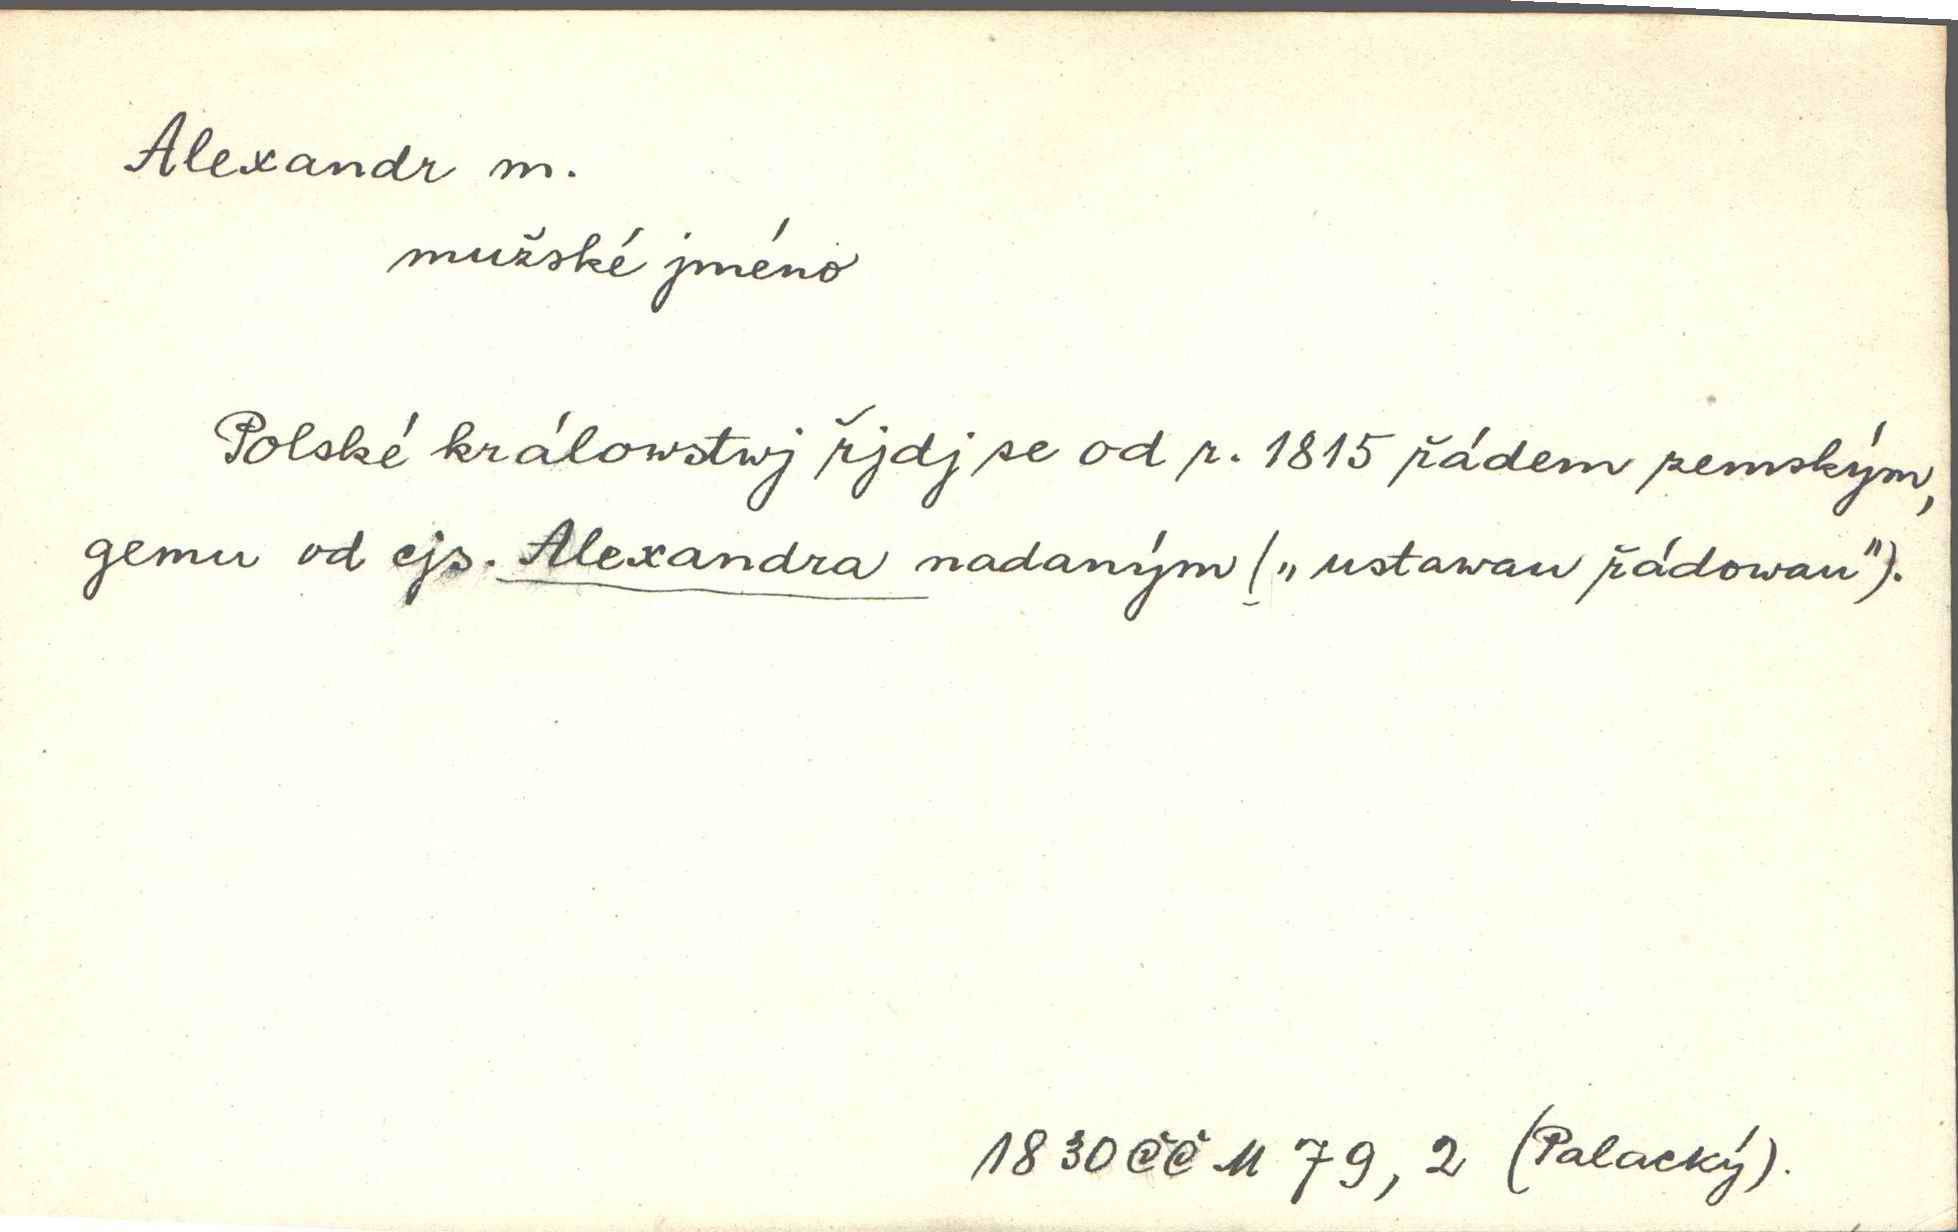 Alexandr m.
mužské jméno
Polské králowstwj řjdj se od r. 1815 řádem zemským,
gemu od cjs. Alexandra nadaným („ustawau řádowau").
1830 ČČM 79, 2 (Palacký).